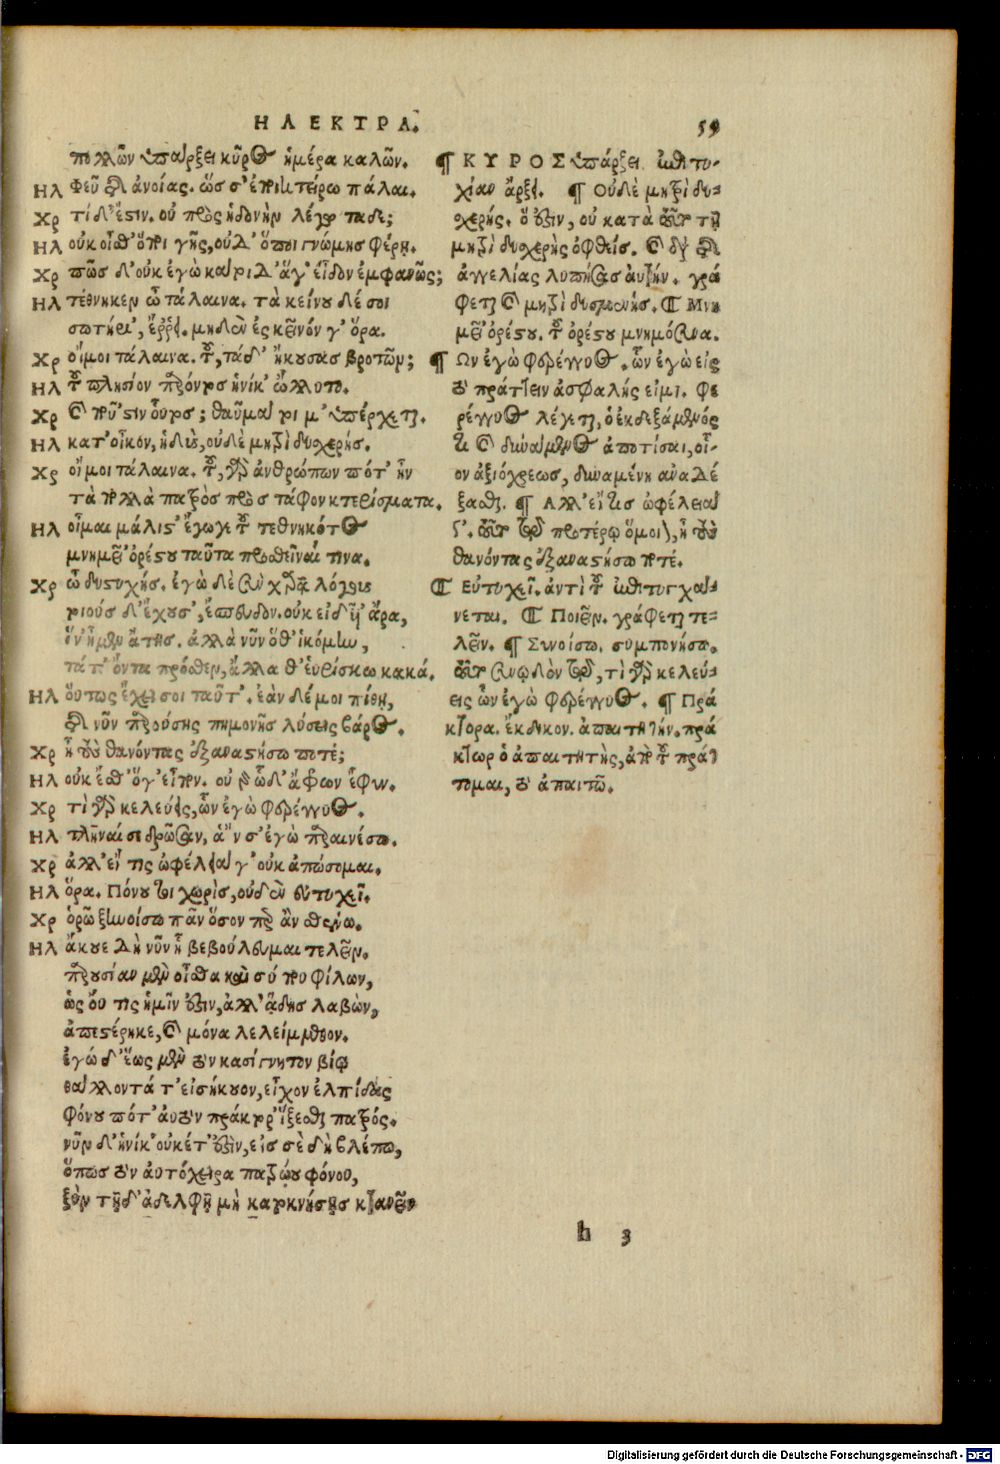 ΗΛΕΚΤΡΑ.
59
πολλῶν ὑπάρξει κῦρος ἡμέρα καλῶν.
ΗΛ φεῦ τῆς ἀνοίας. ὥς σ' ἐποικτείρω πάλαι.
Χρ τί δ' ἔστιν. οὐ πρὸς ἡδονὴν λέγω τάδε;
ΗΛ οὐκ οἶσθ' ὅποι γῆς, οὐδ' ὅποι γνώμης φέρῃ.
Χρ πῶς δ' οὐκ ἐγὼ κάτοιδ' ἅγ' εἶδον ἐμφανῶς;
ΗΛ τέθνηκεν ὦ τάλαινα. τὰ κείνου δέ σοι
σωτήρι', ἔρρει. μηδὲν ἐς κεῖνόν γ' ὅρα.
Χρ οἴμοι τάλαινα. τοῦ, τάδ' ἤκουσας βροτῶν;
ΗΛ τοῦ πλησίον παρόντος ἡνίκ' ὤλλυτο.
Χρ καὶ ποῦ 'στιν οὗτος; θαῦμα τοι μ' ὑπέρχεται.
ΗΛ κατ' οἶκον, ἡδὺς, οὐδὲ μητρὶ δυσχερής.
Χρ οἴμοι τάλαινα. τοῦ, γὰρ ἀνθρώπων πότ' ἦν
τὰ πολλὰ πατρὸς πρὸς τάφον κτερίσματα.
ΗΛ οἶμαι μάλιστ' ἔγωγε τοῦ τεθνηκότος
μνημεῖ' ὀρέστου ταῦτα προσθεῖναί τινα.
Χρ ὦ δυστυχής. ἐγὼ δὲ σὺν χαρᾷ λόγους
τοιούσδ' ἔχουσ', ἔσπευδον. οὐκ εἰδυῖ' ἄρα,
ἵν' ἦμεν ἄτης. ἀλλὰ νῦν ὅθ' ἱκόμην,
τά τ' ὄντα πρόσθεν, ἄλλα θ' εὑρίσκω κακά.
ΗΛ οὕτως ἔχει σοι ταῦτ'. ἐὰν δέ μοι πίθῃ,
τῆς νῦν παρούσης πημονῆς λύσεις βάρος.
Χρ ἦ τοὺς θανόντας ἐξαναστήσω ποτέ;
ΗΛ οὐκ ἔσθ' ὅγ' εἶπον. οὐ γὰρ ὧδ' ἄφρων ἔφυν.
Χρ τί γὰρ κελεύεις, ὧν ἐγὼ φερέγγυος.
ΗΛ τλῆναί σε δρῶσαν, ἃν σ' ἐγὼ παραινέσω.
Χρ ἀλλ' εἴ τις ὠφέλειά γ' οὐκ ἀπώσομαι.
ΗΛ ὅρα. Πόνου τοι χωρὶς, οὐδὲν εὐτυχεῖ.
Χρ ὁρῶ ξυνοίσω πᾶν ὅσον περ ἂν σθένω.
ΗΛ ἄκουε δὴ νῦν ᾗ βεβούλευμαι τελεῖν.
παρουσίαν μὲν οἶσθα καὶ σύ που φίλων,
ὡς οὔ τις ἡμῖν ἐστιν, ἀλλ' ᾅδης λαβὼν,
ἀπεστέρηκε, καὶ μόνα λελείμμεθον.
ἐγώ δ' ἕως μὲν τὸν κασίγνητον βίῳ
θάλλοντά τ' εἰσήκουον, εἶχον ἐλπίδας
φόνου πότ' αὐτὸν πράκτορ' ἵξεσθαι πατρός.
νῦν δ' ἡνίκ' οὐκέτ' ἐστιν, εἰς σὲ δὴ βλέπω,
ὅπως τὸν αὐτόχειρα πατρῴου φόνου,
ξὺν τῇδ' ἀδελφῇ μὴ κατοκνήσῃς κτανεῖν
¶ ΚΥΡΟΣ ὑπάρξει. ἐπιτυ-
χίαν ἄρξει. ¶ Οὐδὲ μητρὶ δυ-
σχερής. ὅ ἐστιν, οὐ κατὰ τοῦτο τῇ
μητρὶ δυσχερὴς ὀφθείς. καὶ διὰ τῆς
ἀγγελίας λυπήσας αὐτήν. γρά
φεται καὶ μητρὶ δυσμενής. ¶ Μνη
μεῖ' ὀρέστου. τοῦ ὀρέστου μνημόσυνα.
¶ Ὧν ἐγὼ φερέγγυος. ὧν ἐγὼ εἰς
τὸ πράττειν ἀσφαλής εἰμι. φε
ρέγγυος λέγεται, ὁ ἐκδεξάμενός
τι καὶ δυνάμενος ἀποτίσαι, οἷ-
ον ἀξιόχρεως, δυναμένη ἀναδέ
ξασθαι. ¶ Ἀλλ' εἴ τις ὠφέλεια
γ'. τοῦτο τῷ προτέρῳ ὅμοιον, ἦ τοὺς
θανόντας ἐξαναστήσω ποτέ.
¶ Εὐτυχεῖ. ἀντὶ τοῦ ἐπιτυγχά-
νεται. ¶ Ποιεῖν. γράφεται τε-
λεῖν. ¶ Συνοίσω. συμπονήσω.
τοῦτο συνῳδὸν τῷ, τί γὰρ κελεύ-
εις ὧν ἐγὼ φερέγγυος. ¶ Πρά
κτορα. ἔκδικον. ἀπαιτητήν. πρά
κτωρ ὁ ἀπαιτητὴς, ἀπὸ τοῦ πράτ
τομαι, τὸ ἀπαιτῶ.
h 3
Digitalisierung gefördert durch die Deutsche Forschungsgemeinschaft - DFG